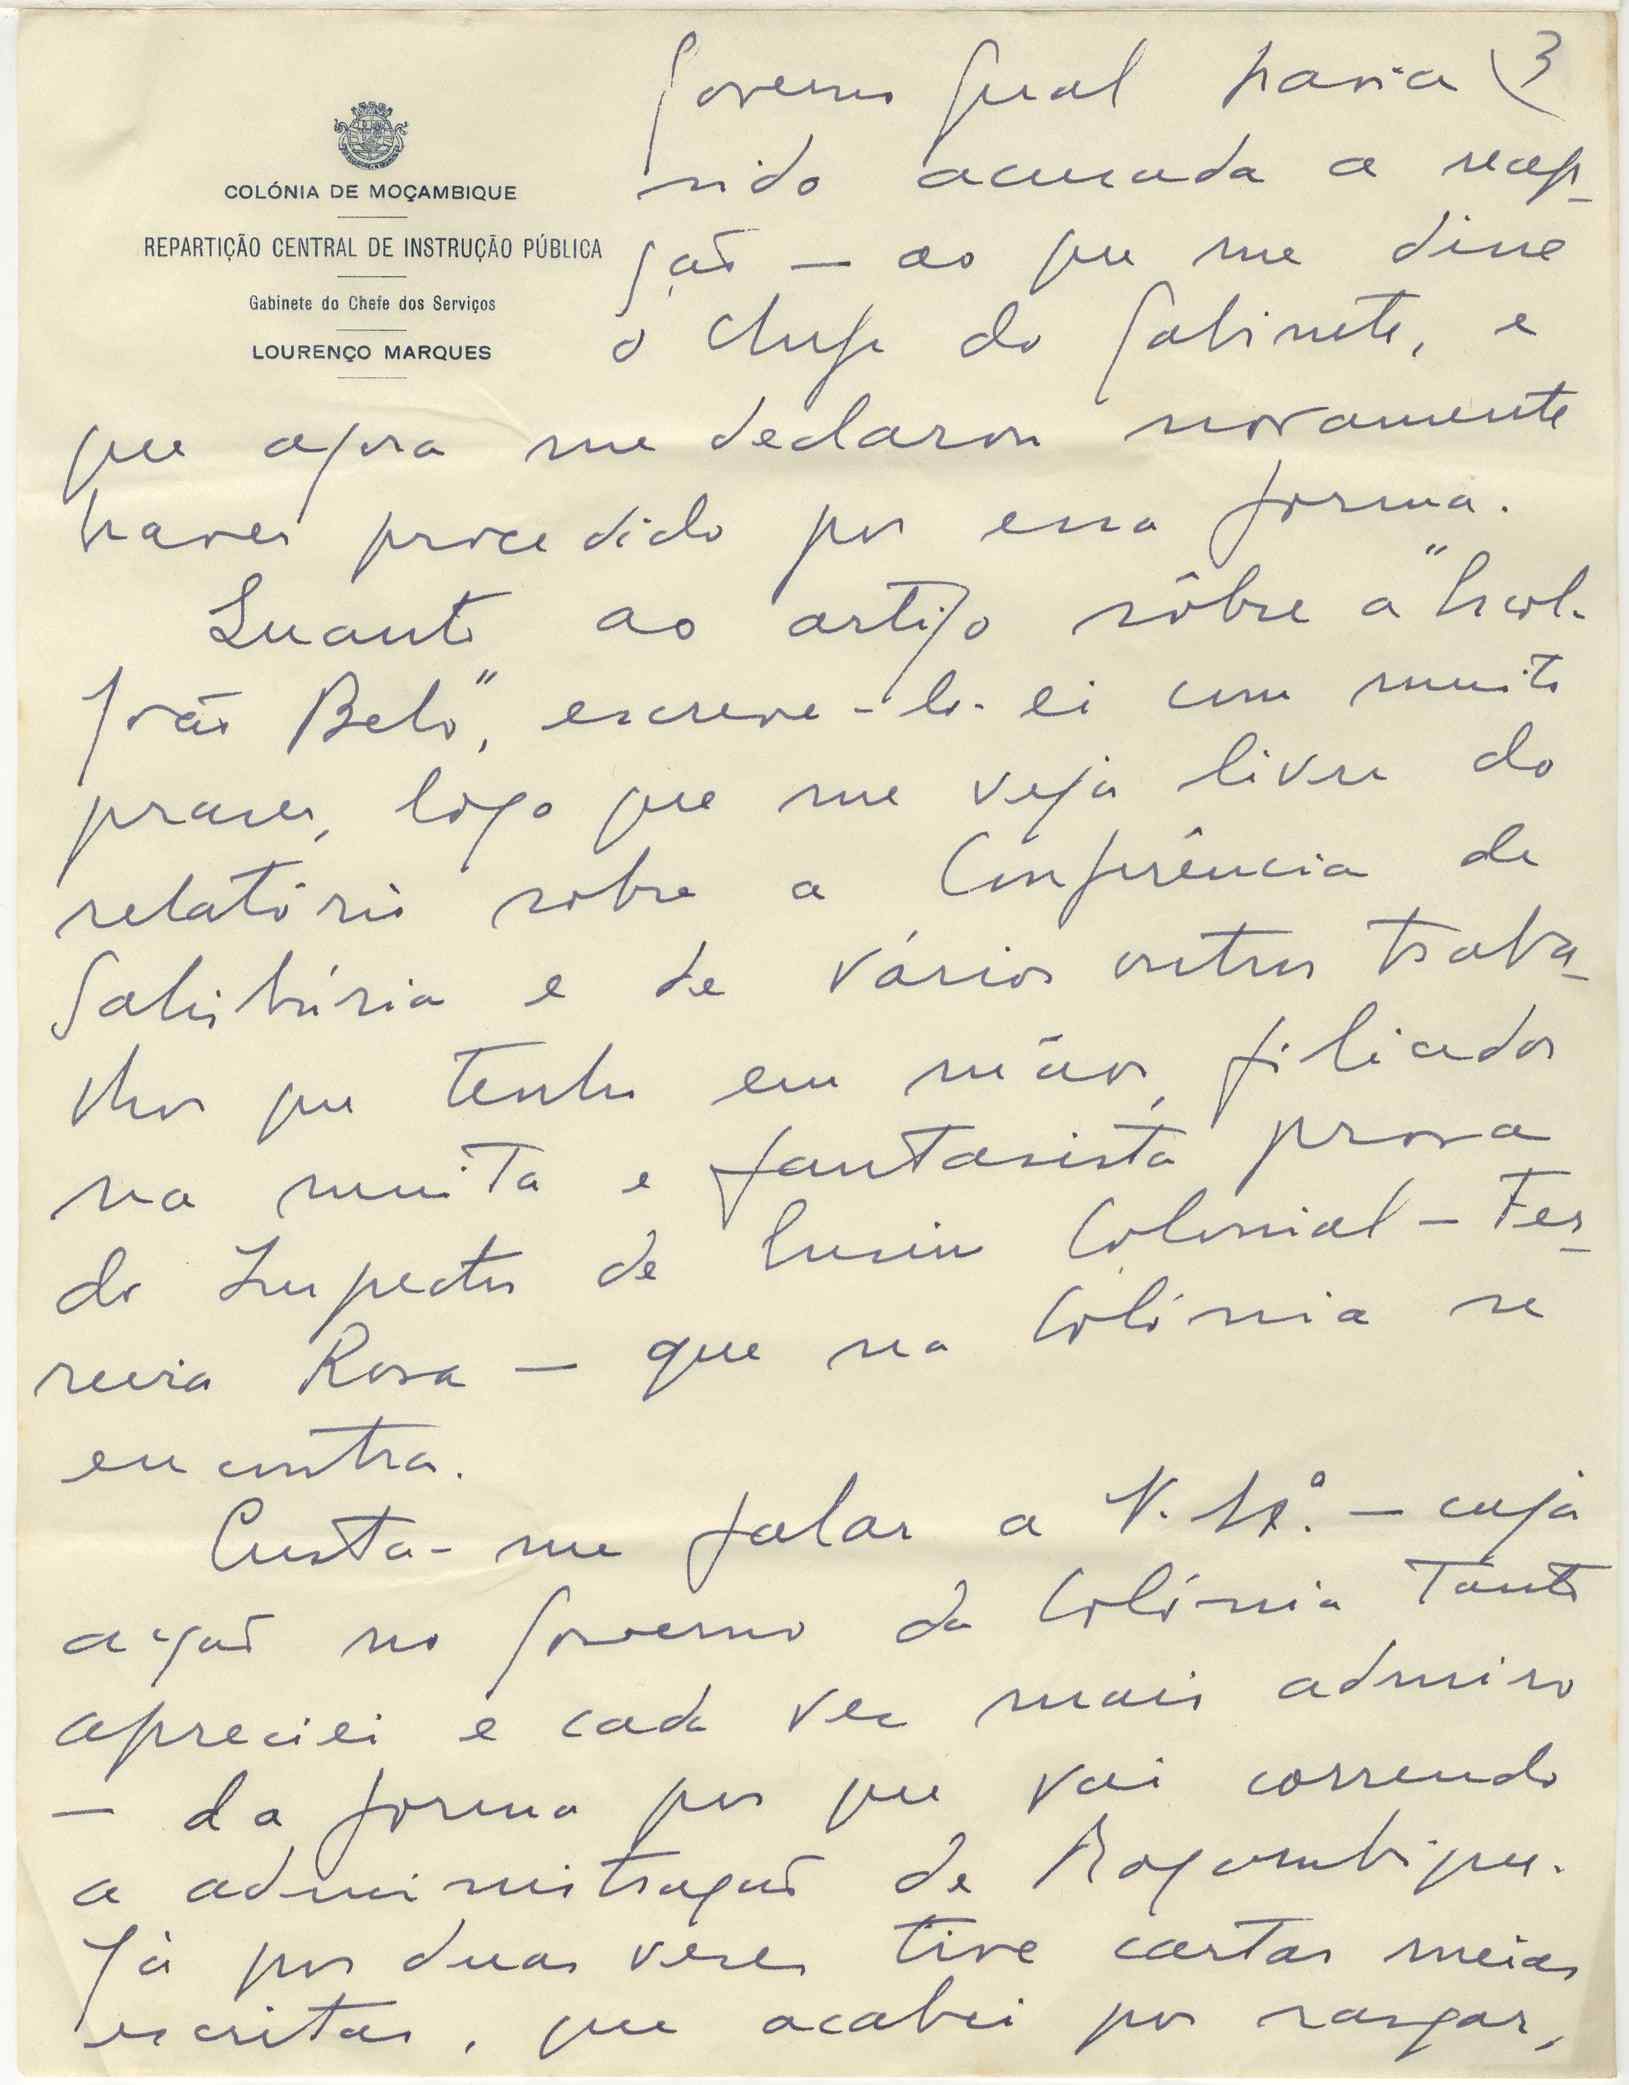 COLÓNIA DE MOÇAMBIQUE
REPARTIÇÃO CENTRAL DE INSTRUÇÃO PÚBLICA
Gabinete do Chefe dos Serviços
LOURENÇO MARQUES
3
Governo Geral havia
sido acusada a recep-
ção — ao que me disse
o Chefe do Gabinete, e
que agora me declarou novamente
haver procedido por essa forma.
Quanto ao artigo sôbre a "Escola
João Belo", escreve-lo-ei com muito
prazer, logo que me veja livre do
relatório sobre a Conferência de
Salisbúria e de vários outros traba-
lhos que tenho em mãos, filiados
na muita e fantasista prosa
do Inspector de Ensino Colonial — Fer-
reira Rosa — que na Colónia se
encontra.
Custa-me falar a V. Exª. — cuja
acção no Governo da Colónia tanto
apreciei e cada vez mais admiro
— da forma por que vai correndo
a administração de Moçambique.
Já por duas vezes tive cartas meias
escritas, que acabei por rasgar,